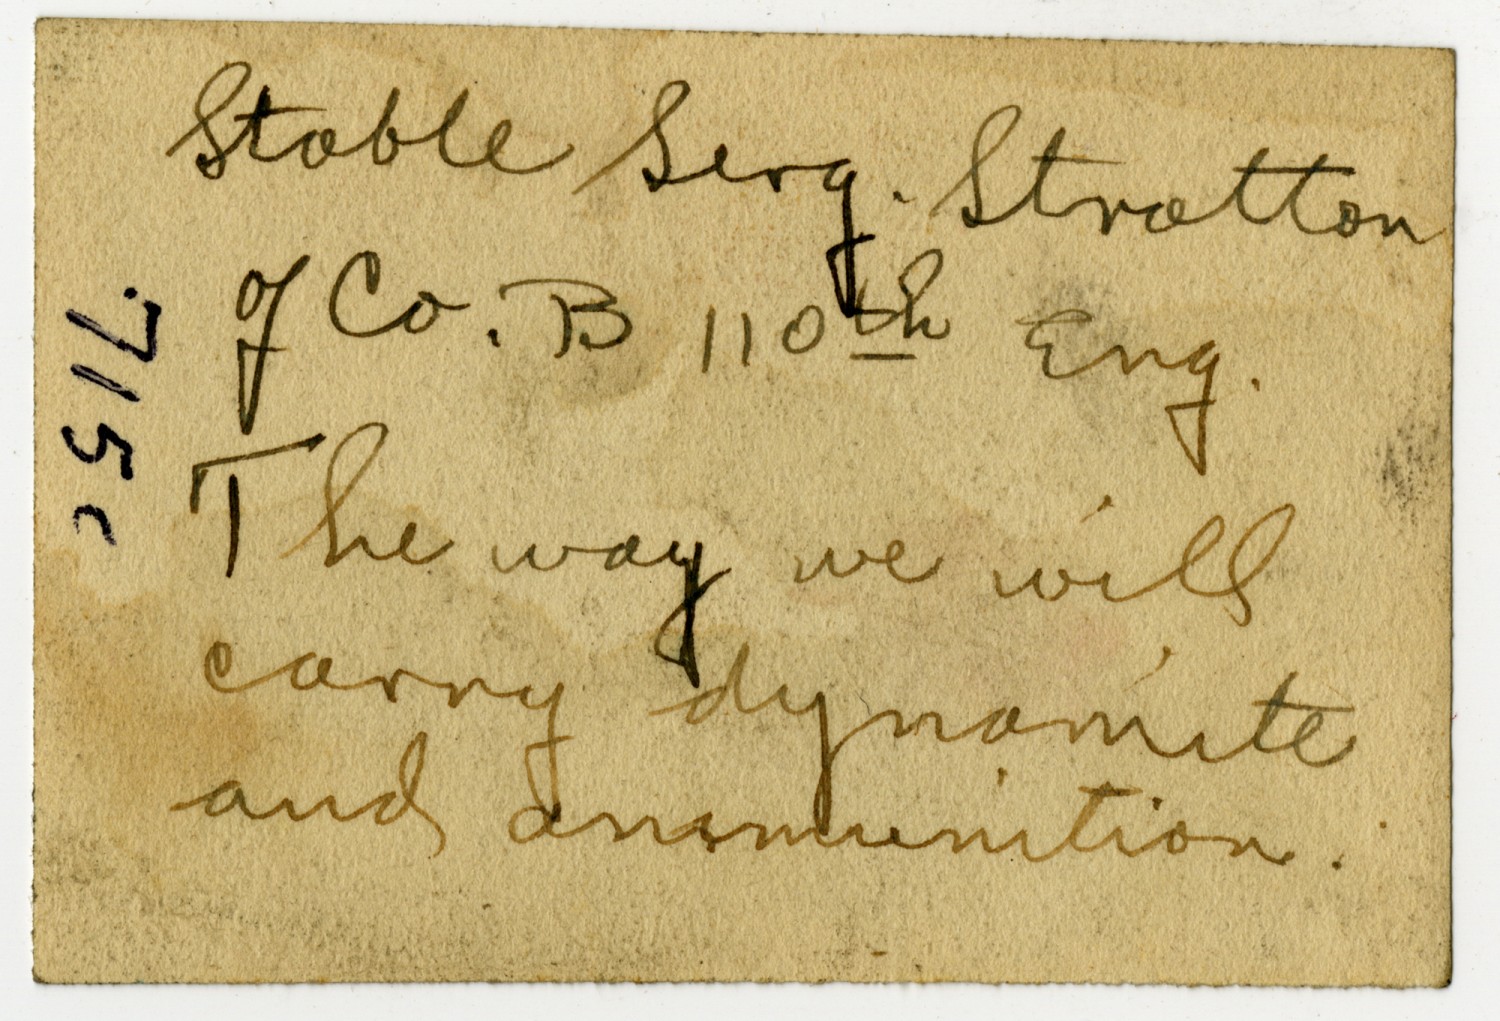 Stable Serg. Stratton
of Co. B 110th Eng.
The way we will
carry dynamite
and ammunition.